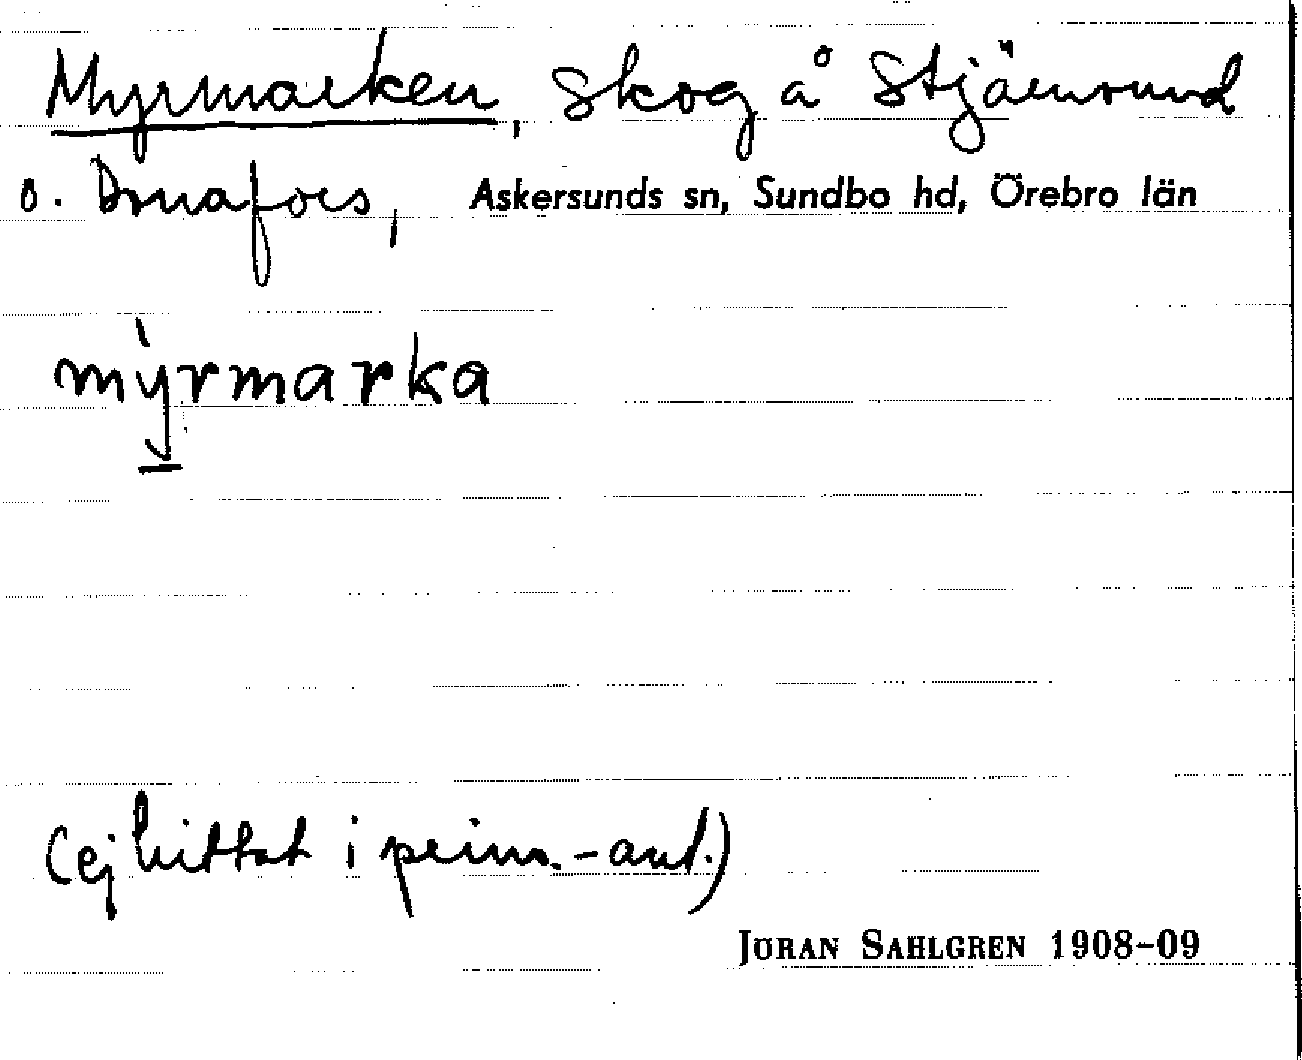 Myrmarken, skog å Stjärnsund
o. Donafors, Askersunds sn, Sundbo hd, Örebro län
mýrmarka
(ej hittat i prim.-ant.)
JÖRAN SAHLGREN 1908-09